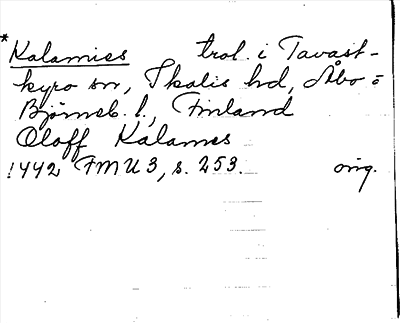 * Kalamies trol. i Tavast-
kyro sn, Ikalis hd, Åbo o
Björneb. l., Finland
Oloff Kalames
1442 FMU 3, s. 253. orig.